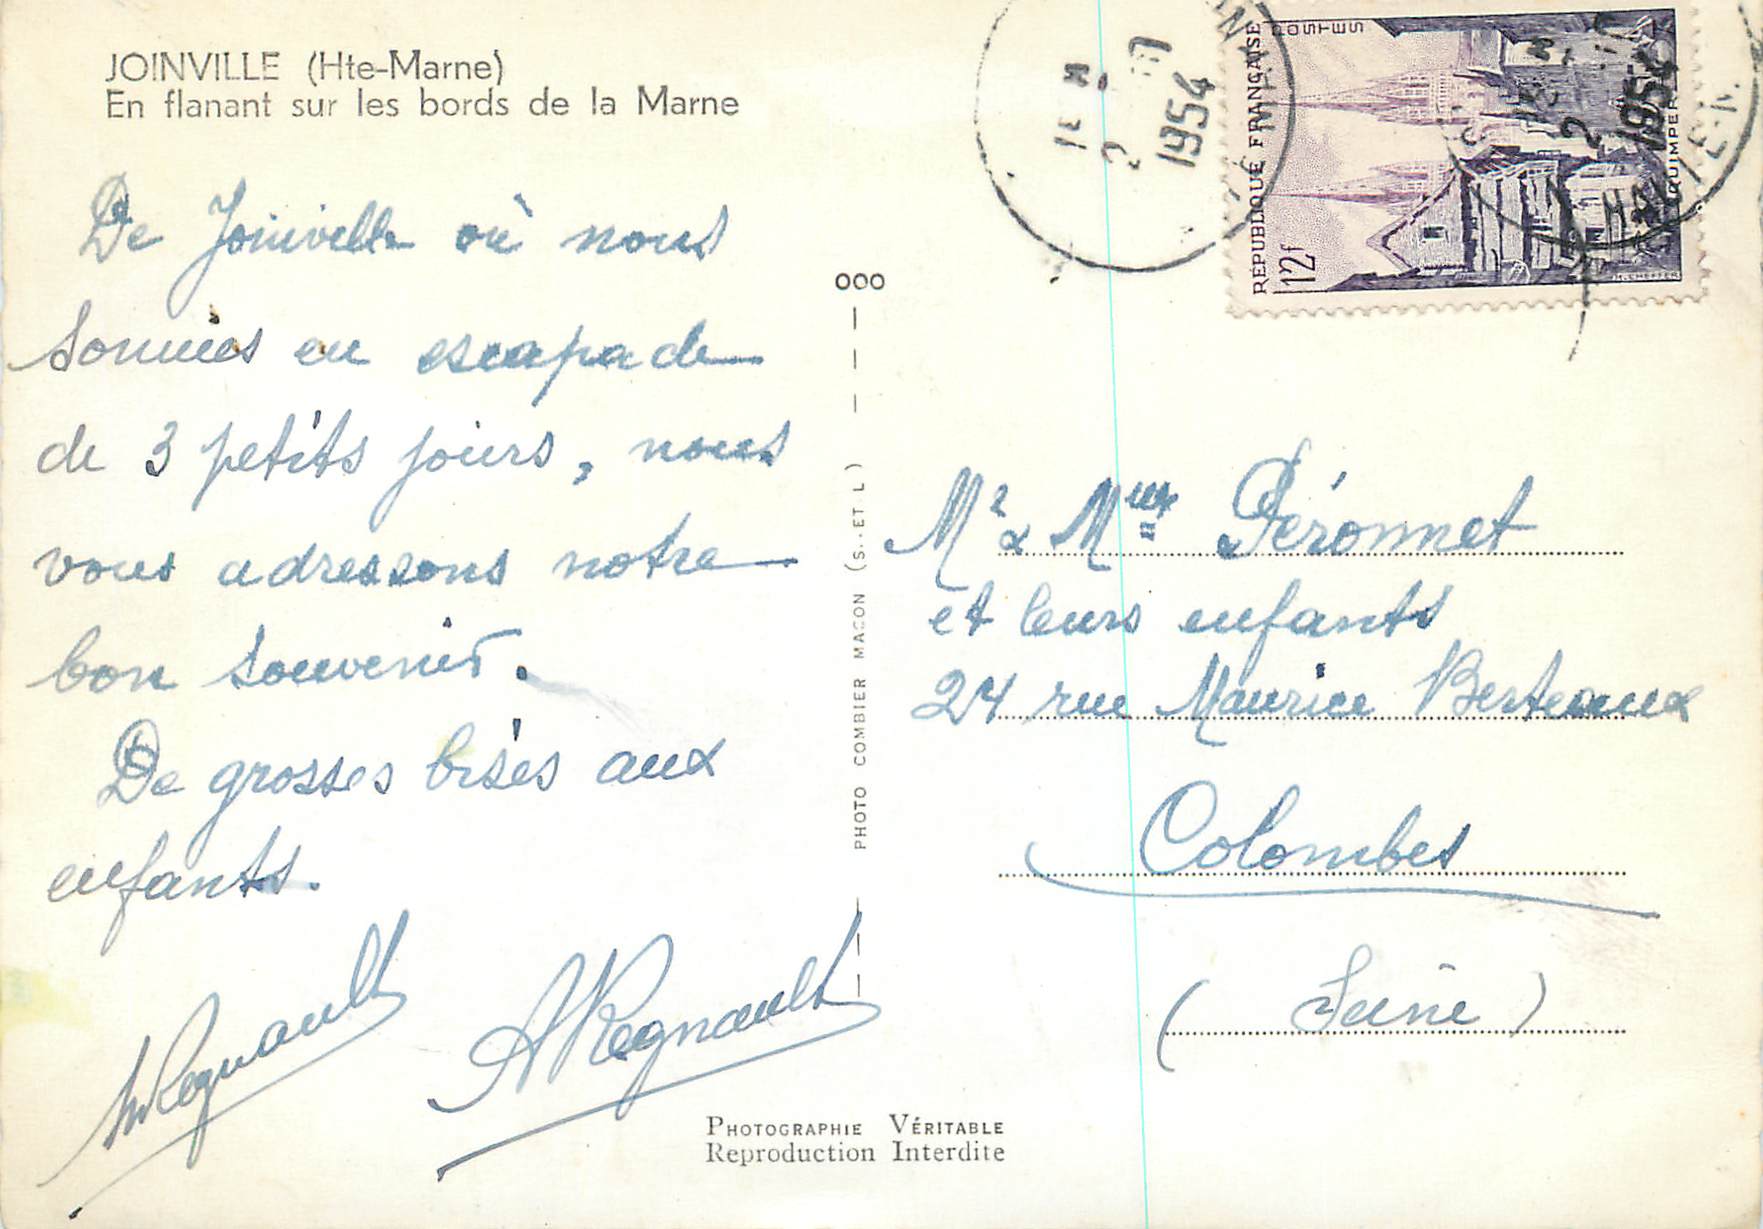 JOINVILLE (Hte-Marne)
En flanant sur les bords de la Marne
De Joinville où nous
sommes en escapade
de 3 petits jours, nous
vous adressons notre
bon souvenir.
De grosses bises aux
enfants.
Regnault
A Regnault
OOO
PHOTO COMBIER MACON (S. ET L)
1954
RÉPUBLIQUE FRANÇAISE
POSTES
12f
QUIMPER
1954
HAUTE-M
Mr & Mme Péronnet
et leurs enfants
24 rue Maurice Berteaux
Colombes
(Seine)
PHOTOGRAPHIE VÉRITABLE
Reproduction Interdite